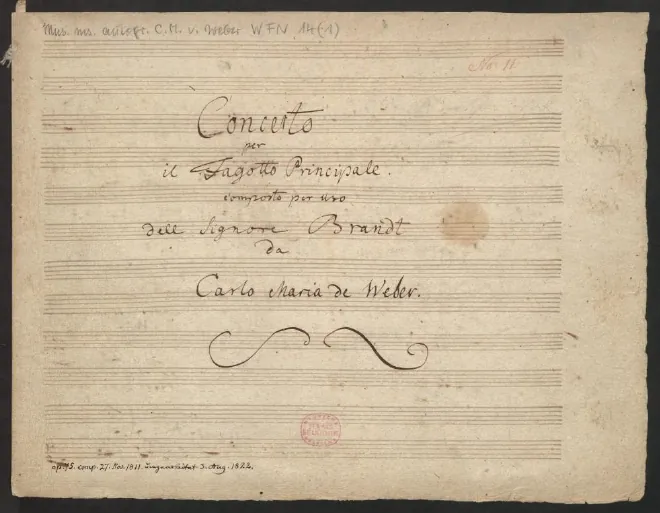 Mus. ms. autogr. C. M. v. Weber WFN 14(1)
No. 11
Concerto
per
il Fagotto Principale.
composto per uso
dell Signore Brandt
da
Carlo Maria de Weber.
op. 75. comp. 27. Nov. 1811. umgearbeitet 3. Aug. 1822.